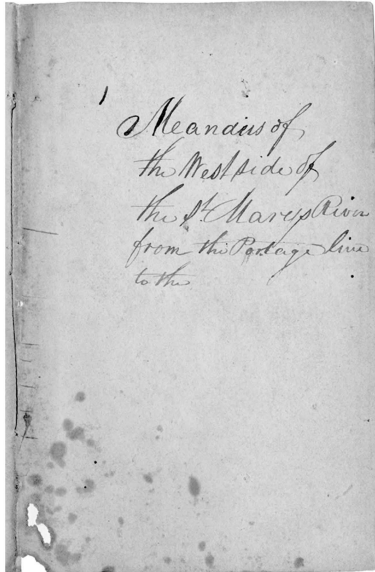 Meanders of
the West side of
the St. Marys River
from the Portage line
to the